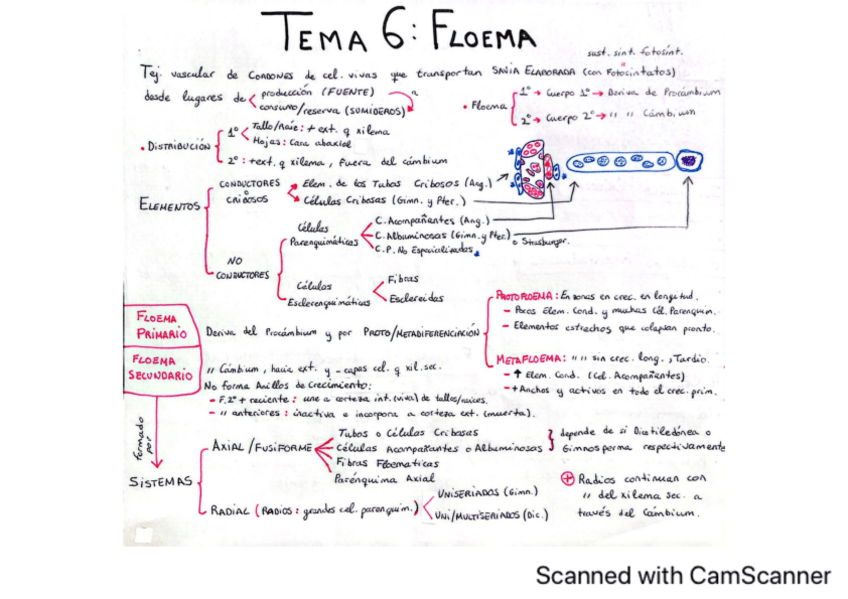 TEMA 6: FLOEMA
sust. sint. fotosint.
Tej. vascular de CORDONES de cel. vivas que transportan SAVIA ELABORADA (con Fotosintatos)
desde lugares de producción (FUENTE)
consumo/reserva (SUMIDEROS)
• Floema
1º → Cuerpo 1º → Deriva de Procámbium
2º → Cuerpo 2º → " " Cámbium
• DISTRIBUCIÓN
1º Tallo/Raíz: + ext. q xilema
Hojas: Cara abaxial
2º: +ext. q xilema, fuera del cámbium
ELEMENTOS
CONDUCTORES o CRIBOSOS
Elem. de los Tubos Cribosos (Ang.)
Células Cribosas (Gimn. y Pter.)
NO CONDUCTORES
Células Parenquimáticas
C. Acompañantes (Ang.)
C. Albuminosas (Gimn. y Pter.) o Strasburger.
C.P. No Especializadas
Células Esclerenquimáticas
Fibras
Esclereidas
FLOEMA PRIMARIO
Deriva del Procámbium y por PROTO/METADIFERENCIACIÓN
PROTOFLOEMA: En zonas en crec. en longitud.
- Pocos Elem. Cond. y muchas Cél. Parenquim.
- Elementos estrechos que colapsan pronto.
METAFLOEMA: " " sin crec. long., Tardío.
- ↑ Elem. Cond. (Cel. Acompañantes)
- + Anchos y activos en todo el crec. prim.
FLOEMA SECUNDARIO
" Cámbium, hacia ext. y - capas cel. q xil. sec.
No forma Anillos de Crecimiento:
- F. 2º + reciente: une a corteza int. (viva) de tallos/raíces.
- " anteriores: inactiva e incorpora a corteza ext. (muerta).
formado por
SISTEMAS
AXIAL/FUSIFORME
Tubos o Células Cribosas
Células Acompañantes o Albuminosas
Fibras Floemáticas
Parénquima Axial
depende de si Dicotiledónea o
Gimnosperma respectivamente
RADIAL (RADIOS: grandes cel. parenquim.)
UNISERIADOS (Gimn.)
UNI/MULTISERIADOS (Dic.)
⊕ Radios continuan con
" del xilema sec. a
través del Cámbium.
Scanned with CamScanner